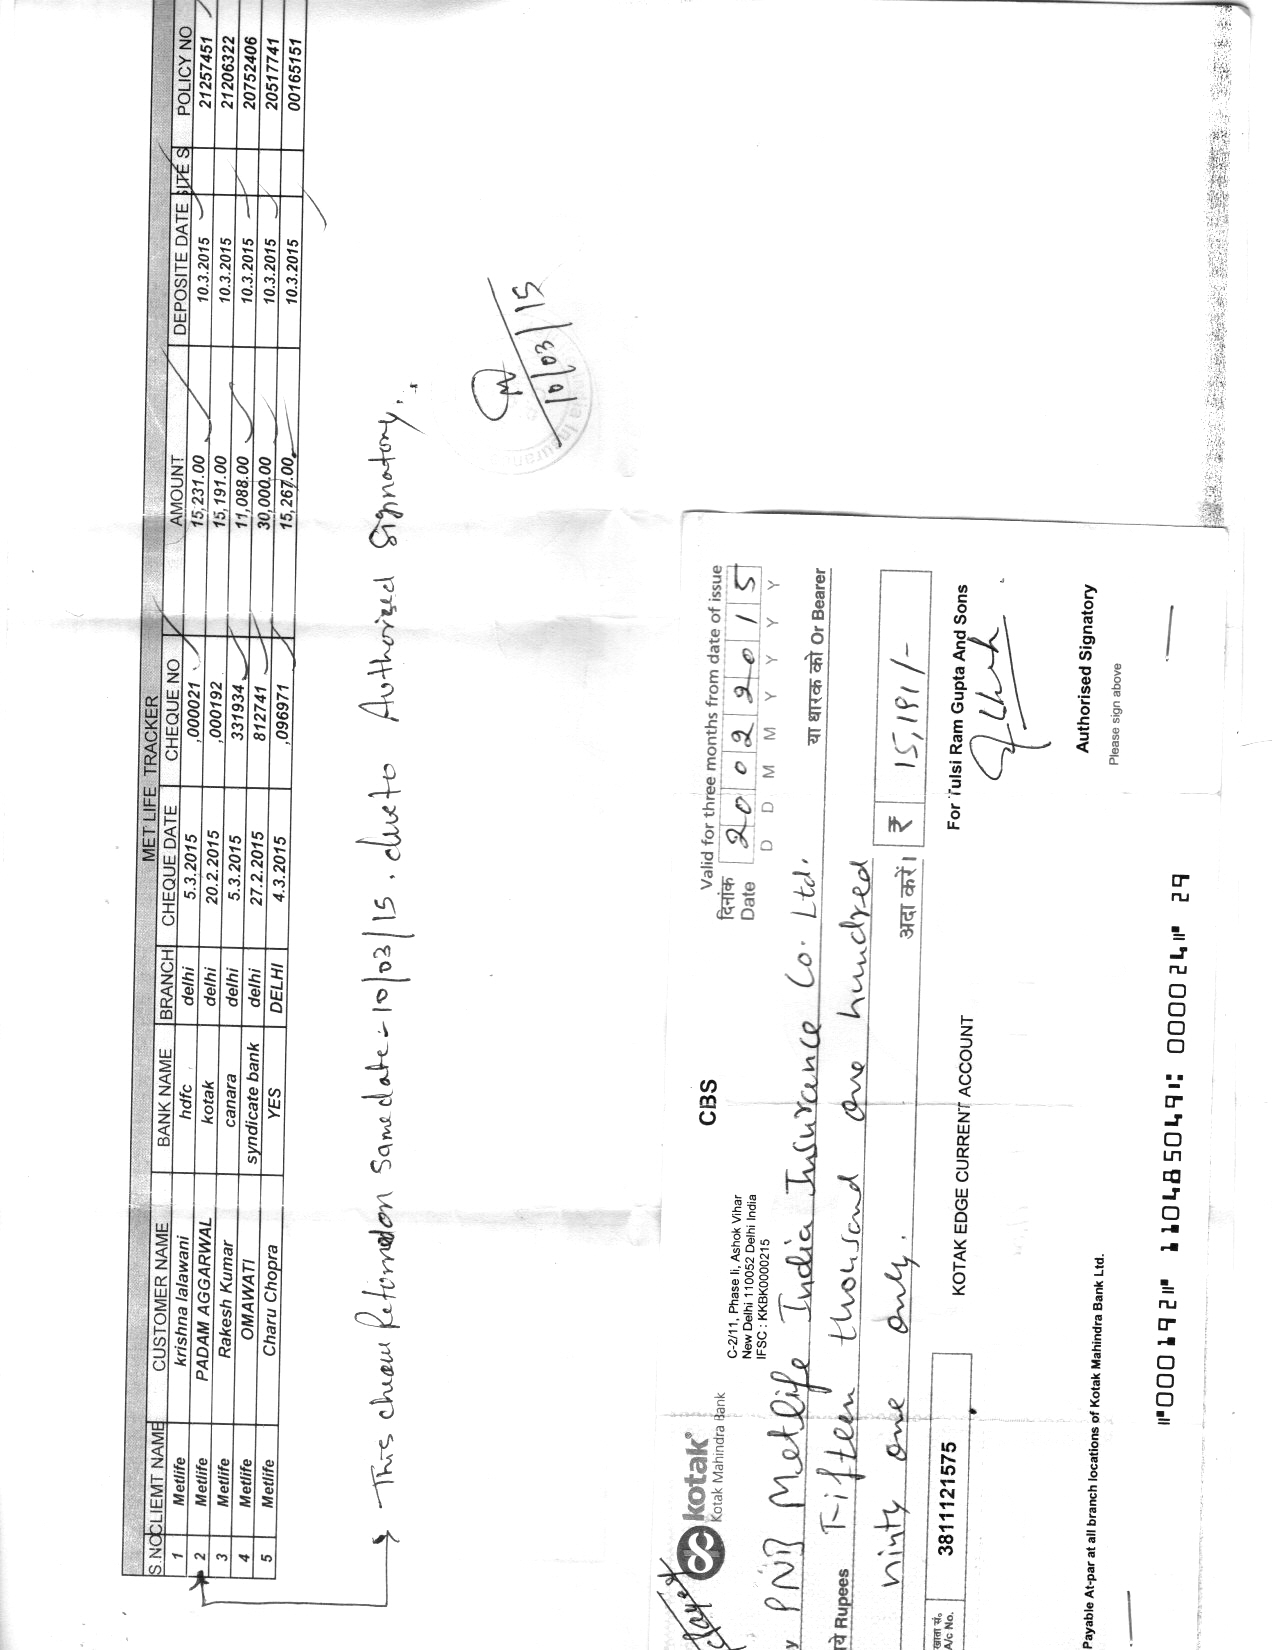 MET LIFE TRACKER
S.NO CLIEMT NAME CUSTOMER NAME BANK NAME BRANCH CHEQUE DATE CHEQUE NO AMOUNT DEPOSITE DATE SITE S POLICY NO
1 Metlife krishna lalawani hdfc delhi 5.3.2015 ,000021 15,231.00 10.3.2015 21257451
2 Metlife PADAM AGGARWAL kotak delhi 20.2.2015 ,000192 15,191.00 10.3.2015 21206322
3 Metlife Rakesh Kumar canara delhi 5.3.2015 331934 11,088.00 10.3.2015 20752406
4 Metlife OMAWATI syndicate bank delhi 27.2.2015 812741 30,000.00 10.3.2015 20517741
5 Metlife Charu Chopra YES DELHI 4.3.2015 ,096971 15,267.00 10.3.2015 00165151
This same date - 10/03/15 . due to Authorized Signatory.
10/03/15
kotak
Kotak Mahindra Bank
C-2/11, Phase Ii, Ashok Vihar
New Delhi 110052 Delhi India
IFSC : KKBK0000215
CBS
Valid for three months from date of issue
दिनांक
Date 20022015
D D M M Y Y Y Y
y PNB Metlife India Insurance Co. Ltd. या धारक को Or Bearer
पये Rupees Fifteen thousand one hundred
ninty one only. अदा करें। ₹ 15,191/-
खाता सं.
A/c No. 3811121575
KOTAK EDGE CURRENT ACCOUNT
For Tulsi Ram Gupta And Sons
Authorised Signatory
Please sign above
Payable At-par at all branch locations of Kotak Mahindra Bank Ltd.
⑈000192⑈ 110485049⑆ 000024⑈ 29